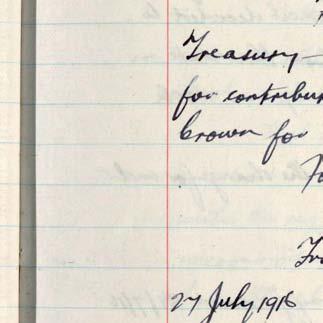 Treasury —
for contribu
brown for
27 July 1916